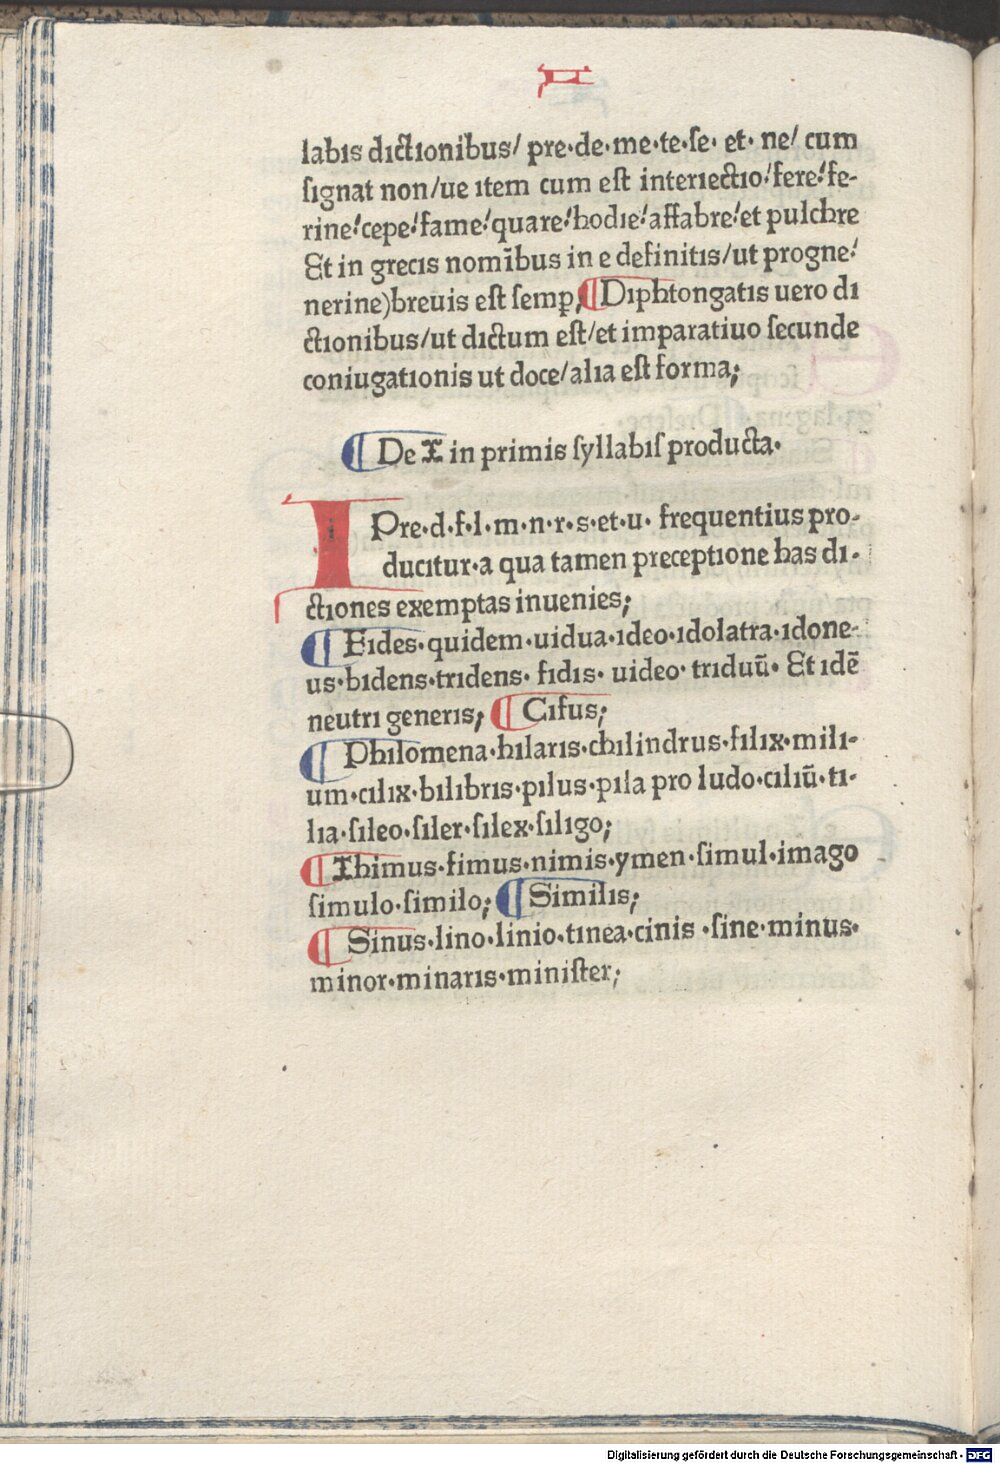 labis dictionibus/ pre·de·me·te·se· et· ne/ cum
signat non/ue item cum est interiectio/fere/fe-
rine/cepe/fame/quare/hodie/affabre/et pulchre
Et in grecis nomībus in e definitis/ut progne/
nerine)breuis est semꝑ; ¶ Diphtongatis uero di
ctionibus/ut dictum est/et imparatiuo secunde
coniugationis ut doce/alia est forma;
¶ De I in primis syllabis producta·
I Pre·d·f·l·m·n·r·s·et·u· frequentius pro-
ducitur·a qua tamen preceptione has di-
ctiones exemptas inuenies;
¶ Fides·quidem·uidua·ideo·idolatra·idone-
us·bidens·tridens· fidis· uideo· triduū· Et idē
neutri generis; ¶ Cifus;
¶ Philomena·hilaris·chilindrus·filix·mili-
um·cilix·bilibris·pilus·pila pro ludo·ciliū·ti-
lia·sileo·siler·silex·siligo;
¶ Thimus·fimus·nimis·ymen·simul·imago
simulo·similo; ¶ Similis;
¶ Sinus·lino·linio·tinea·cinis ·sine·minus·
minor·minaris·minister;
Digitalisierung gefördert durch die Deutsche Forschungsgemeinschaft - DFG